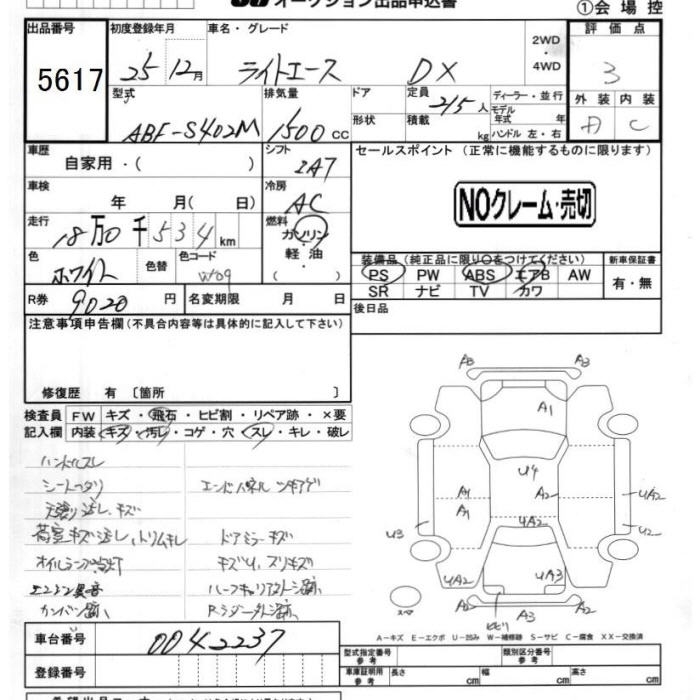 オークション出品申込書
①会場控
出品番号
5617
初度登録年月
25 12月
車名・グレード
ライトエース DX
2WD
・
4WD
評価点
3
外装 内装
A C
型式
ABF-S402M
排気量
1500 CC
ドア
形状
定員 2/5人
積載 kg
ディーラー・並行
モデル
年式 年
ハンドル 左・右
車歴
自家用・( )
車検
年 月( 日)
走行
18万0千534km
色
ホワイト
色替
色コード
W09
シフト
IA7
冷房
AC
燃料
ガソリン
軽油
( )
R券 9020 円
名変期限 月 日
セールスポイント (正常に機能するものに限ります)
NOクレーム・売切
装備品 (純正品に限り○をつけてください)
PS PW ABS エアB AW
SR ナビ TV カワ
新車保証書
有・無
後日品
注意事項申告欄(不具合内容等は具体的に記入して下さい)
修復歴 有 〔箇所 〕
検査員 FW キズ・飛石・ヒビ割・リペア跡・×要
記入欄 内装 キズ・汚レ・コゲ・穴・スレ・キレ・破レ
ハンドルスレ
シートヘタリ
エンドパネル ツキアゲ
天張り汚レ、キズ
荷室キズ汚レ、トリムキレ
ドアミラーキズ
オイルランプ点灯
キズU、スリキズ
エンジン異音
カンバン跡
A3 A3
A1
U4
A1 A2 UA2
A1
UA2
U3 U2
UA2 UA3
A2 A3 A2
スペア
A-キズ E-エクボ U-凹み W-補修跡 S-サビ C-腐食 XX-交換済
車台番号 0042237
登録番号
型式指定番号
参考
類別区分番号
参考
車庫証明用
参考
長さ cm 幅 cm 高さ cm